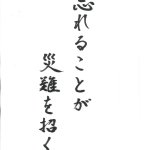 忘れることが
災難を招く